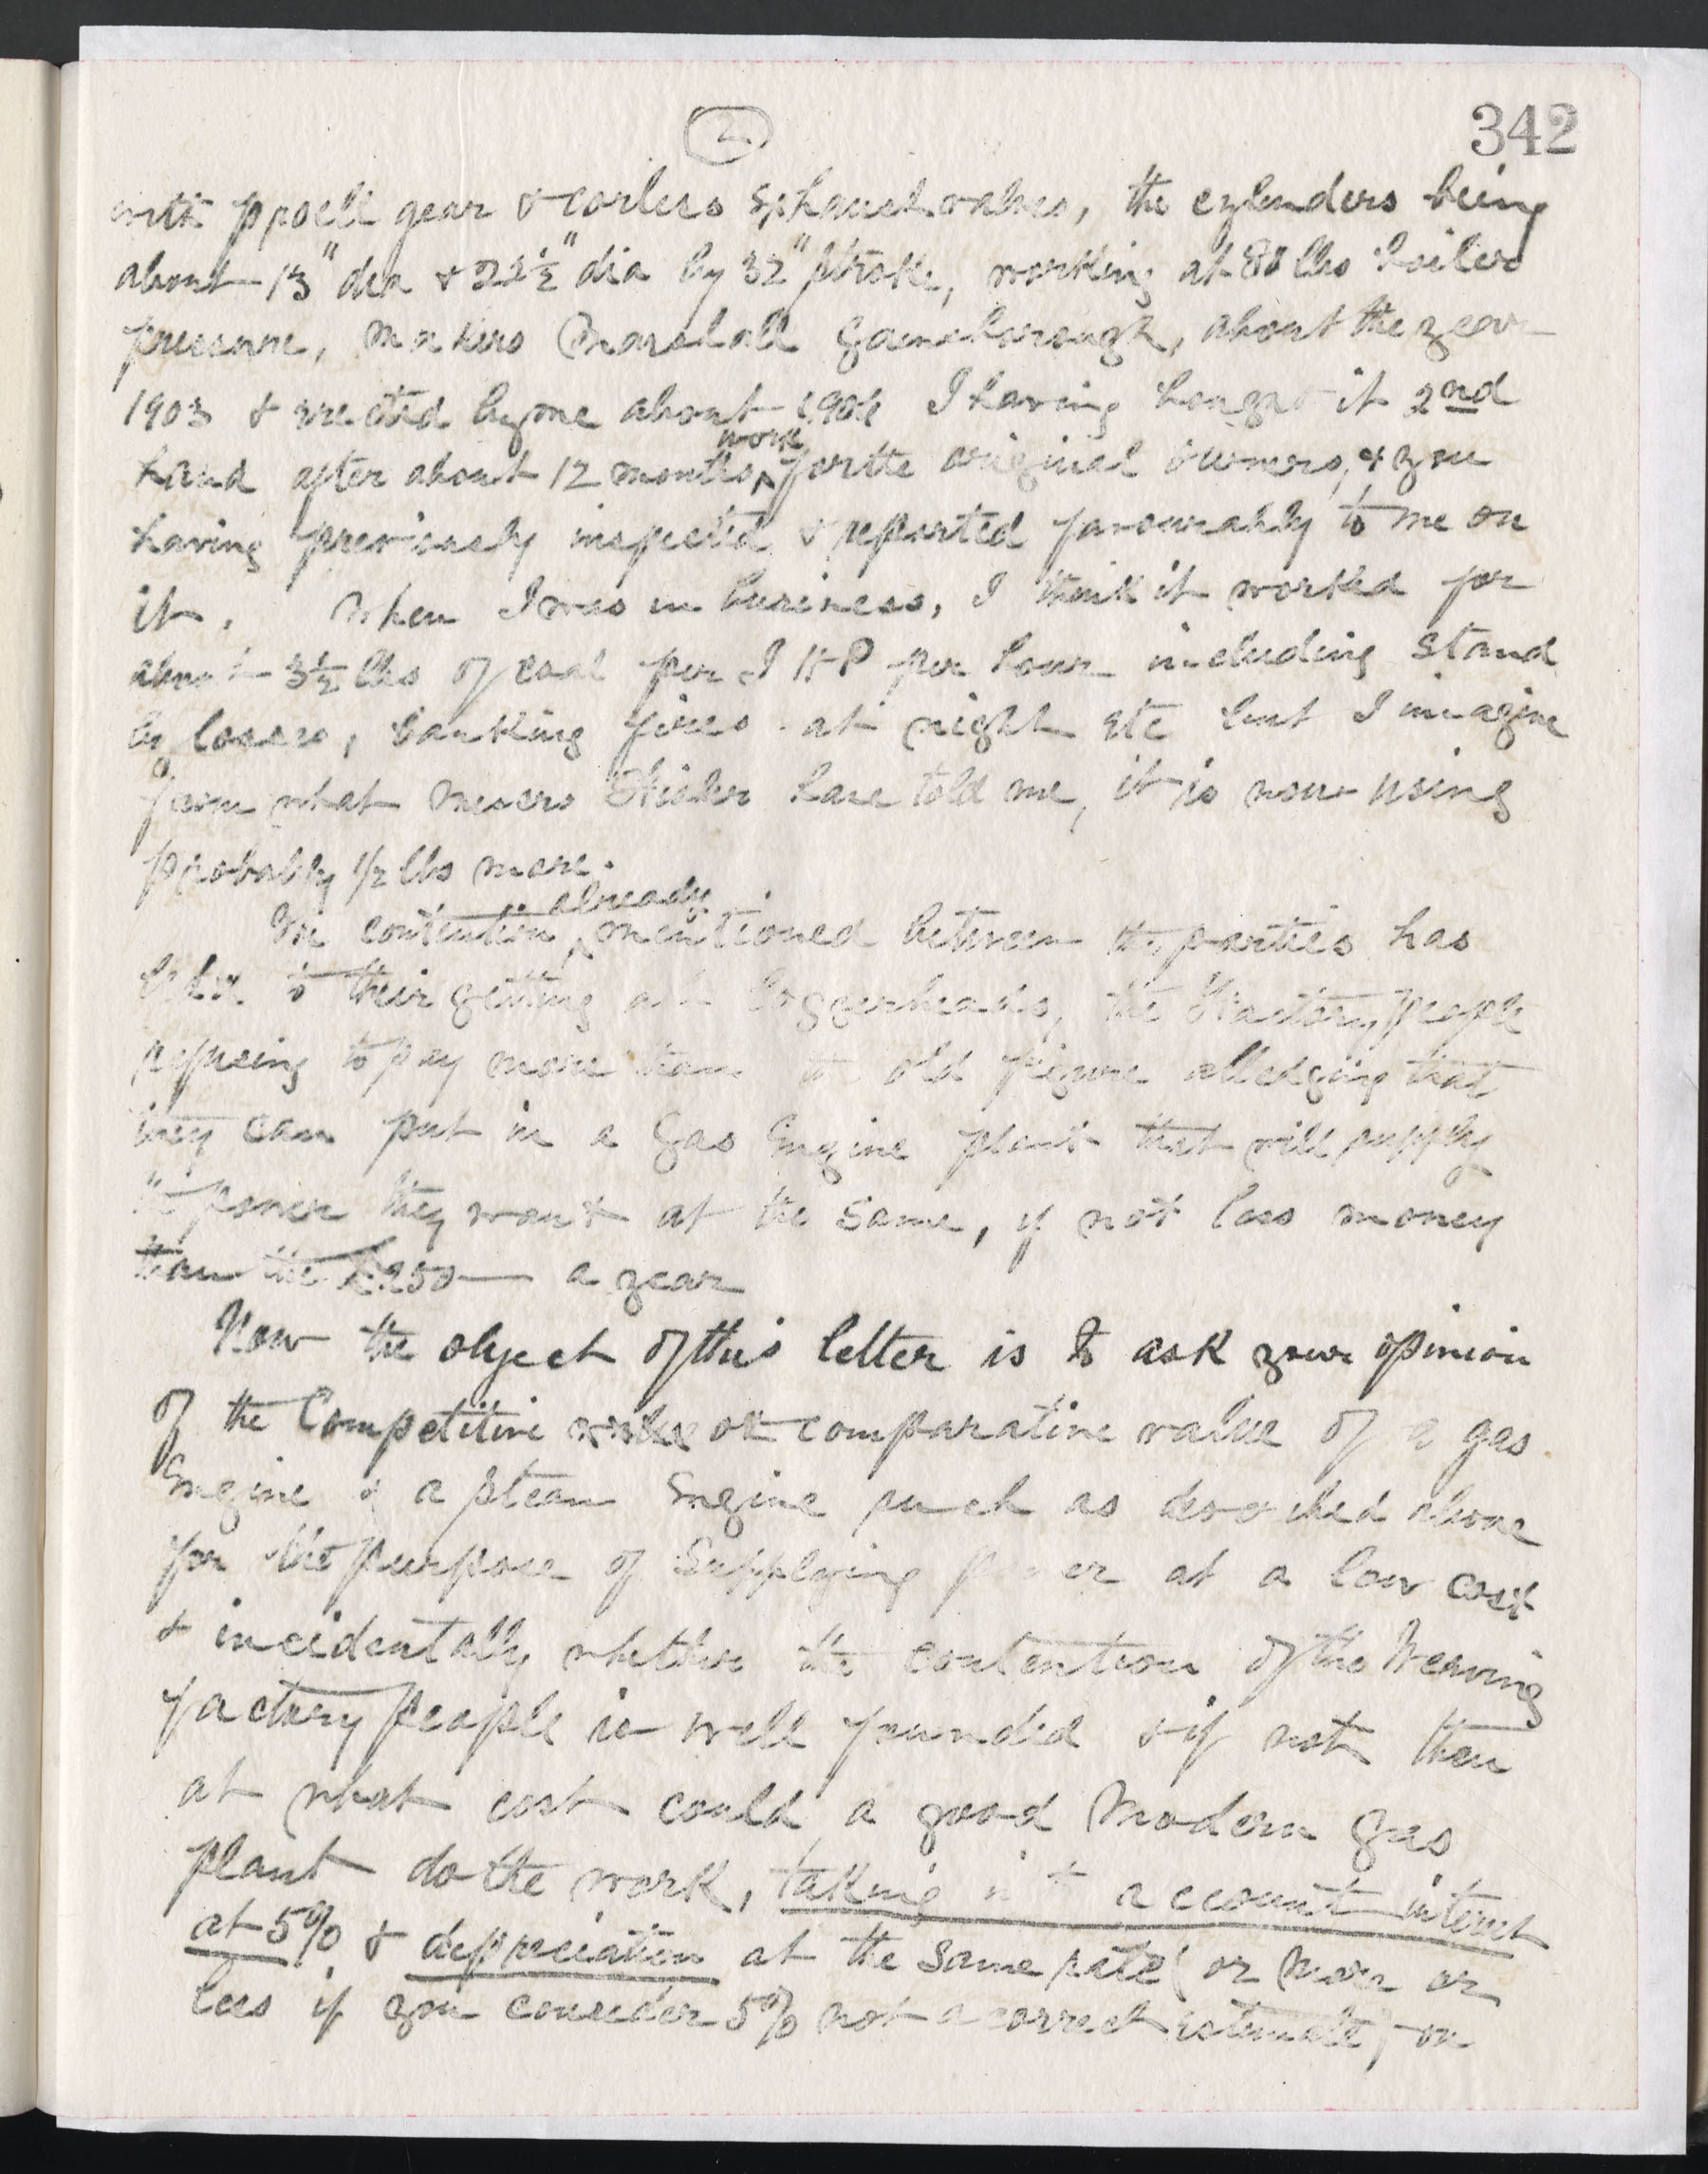 2
342
with proell gear & corliss Exhaust valves, the cylinders being
about 13" dia & 22½" dia by 32" stroke, working at 80 lbs boiler
pressure, makers Marshall Gainsborough, about the year
1903 & erected by me about 1904 I having bought it 2nd
hand after about 12 months work for the original owners, & you
having previously inspected & reported favourably to me on
it. When I was in business, I think it worked for
about 3½ lbs of coal per I H P per hour including stand
by losses, banking fires at night etc but I imagine
from what Messrs have told me, it is now using
probably ½ lbs more.
The contention already mentioned between the parties has
led to their getting at loggerheads, the Factory people
refusing to pay more than the old figure alledging that
they can put in a gas Engine plant that will supply
the power they want at the same, if not less money
than the £250 — a year
Now the object of this letter is to ask your opinion
of the Competitive or comparative value of a gas
Engine & a steam Engine such as described above
for the purpose of Supplying power at a low cost
& incidentally whether the contention of the Weaving
factory people is well founded & if not then
at what cost could a good Modern gas
plant do the work, taking into account interest
at 5% & depreciation at the same rate (or more or
less if you consider 5% not a correct estimate) on